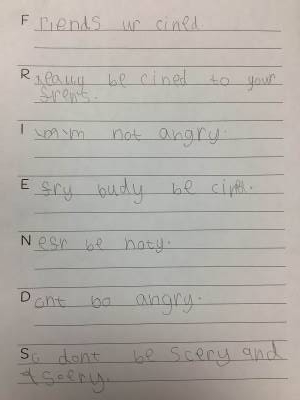 Friends ur cined
Really be cined to your
frens.
I am not angry.
Efry budy be cind.
Nefr be noty.
Dont bo angry.
So dont be scery and
soery.